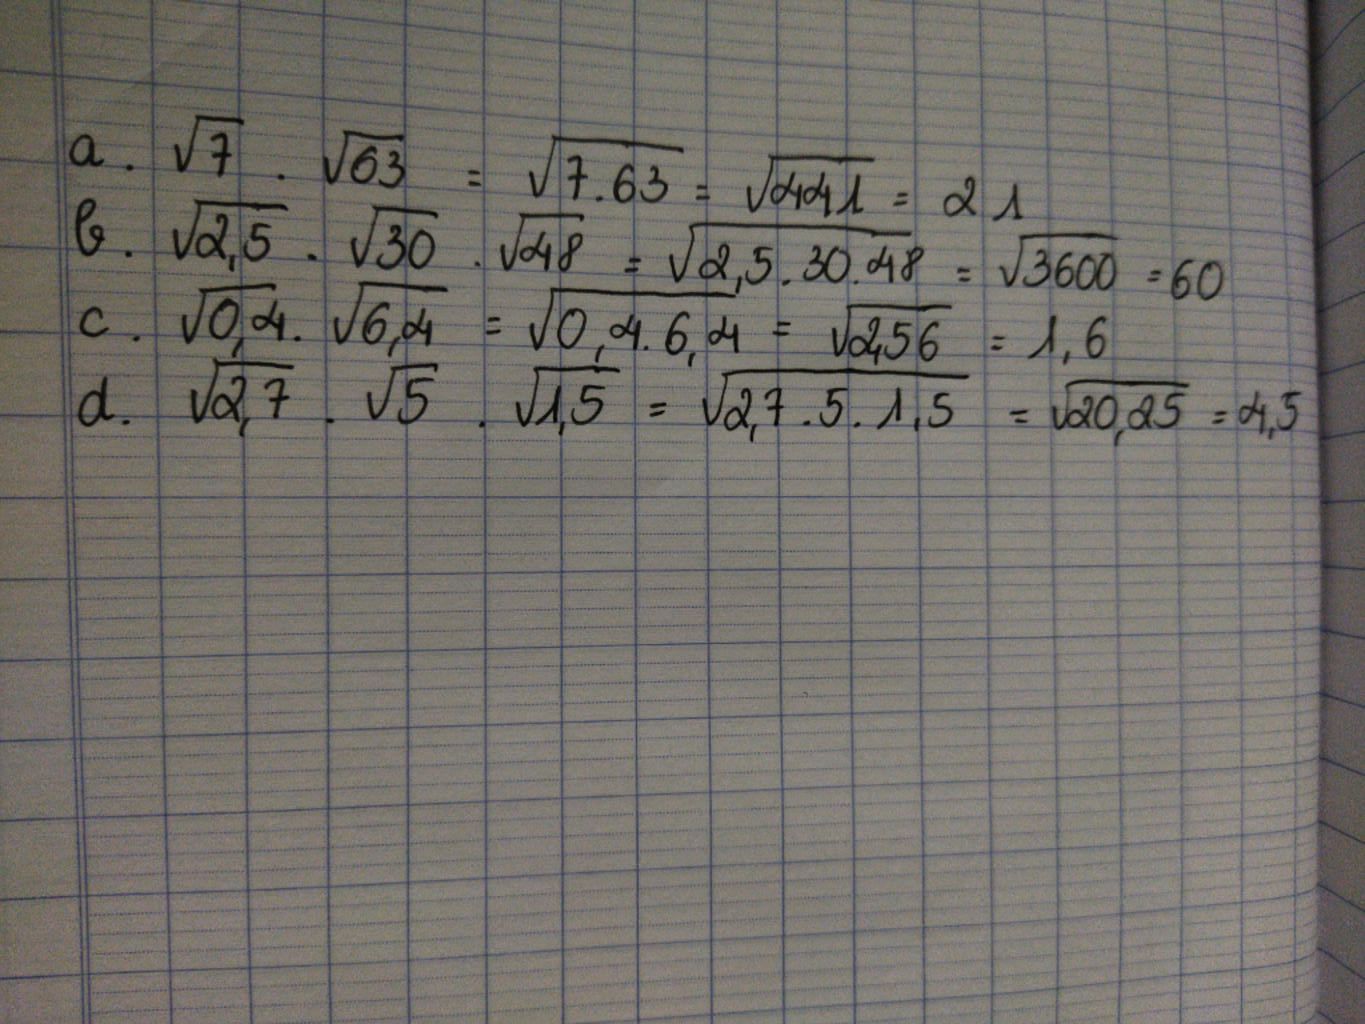 a. √7 . √63 = √7.63 = √441 = 21
b. √2,5 . √30 . √48 = √2,5.30.48 = √3600 = 60
c. √0,4. √6,4 = √0,4.6,4 = √2,56 = 1,6
d. √2,7 . √5 . √1,5 = √2,7.5.1,5 = √20,25 = 4,5